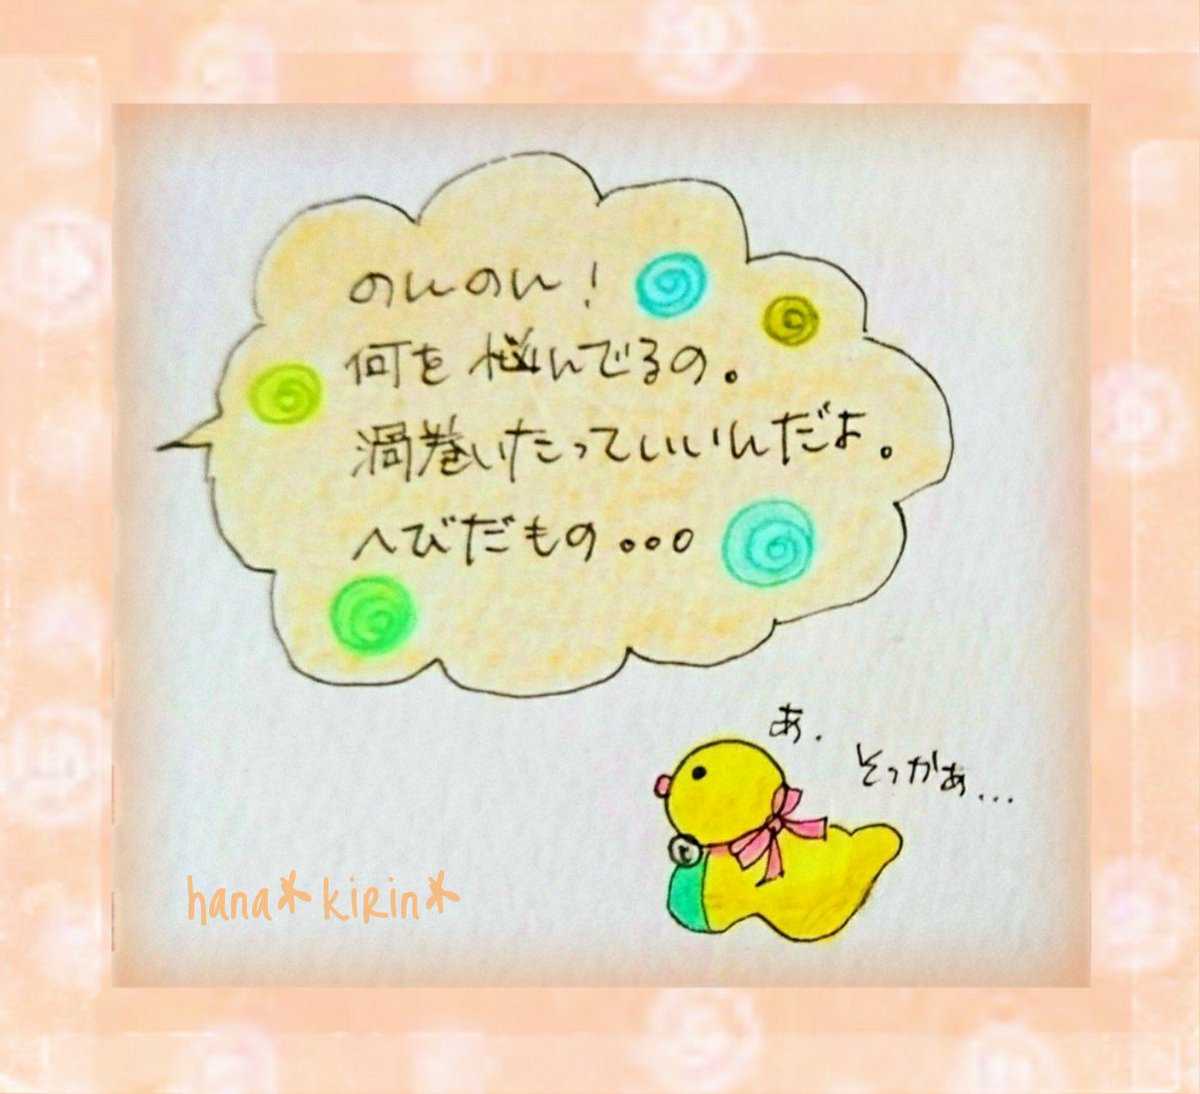 のんのん！
何を悩んでるの。
渦巻いたっていいんだよ。
へびだもの。。。
あ.
そっかぁ...
hana*kirin*